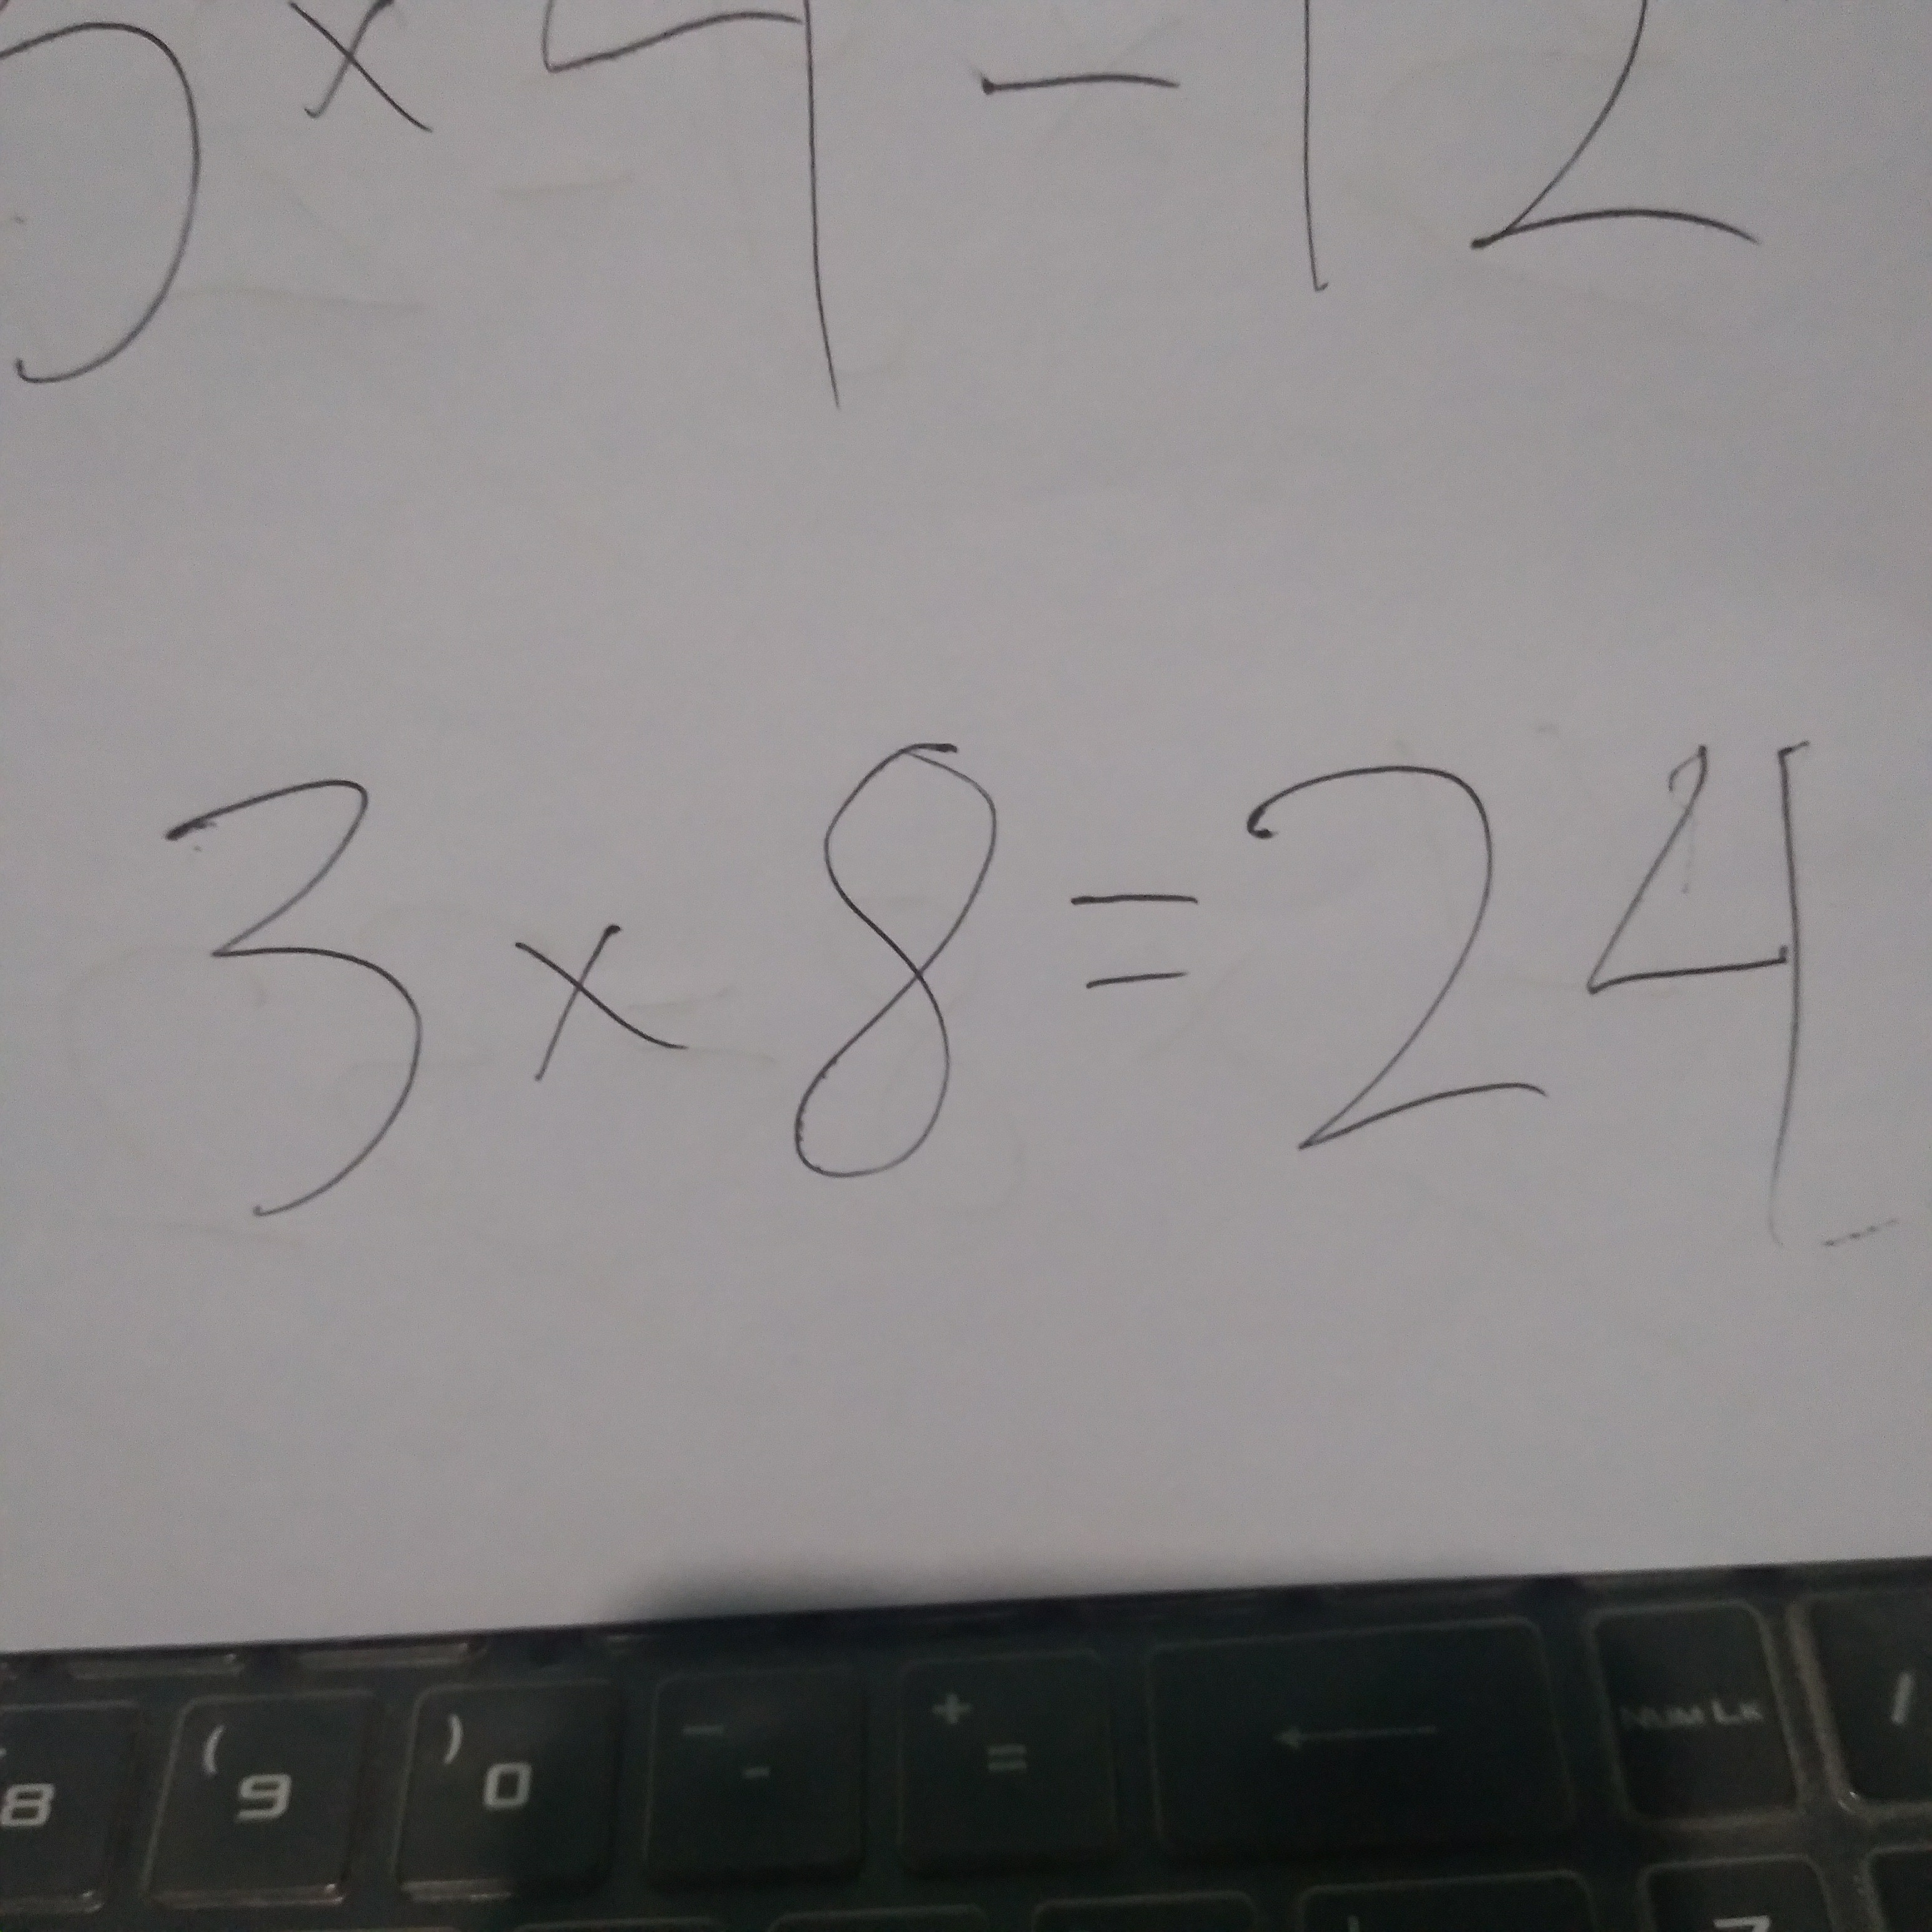 × 4 - 12
3 × 8 = 24
8 ( 9 ) 0 - - + = ← NUM LK /
7